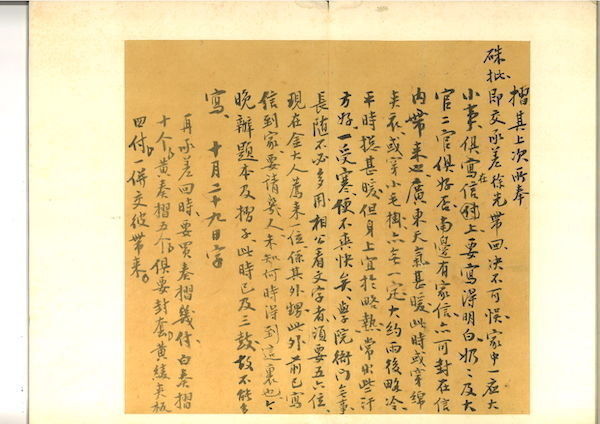 摺其上次所奉
硃批即交承差徐光帶回決不可悞家中一应大
小事俱寫在信封上要寫得明白奶〻及大
官二官俱好否南邊有家信亦可封在信
內帶來也廣東天氣甚暖此時或穿綿
夹衣或穿小毛掛亦無一定大約雨後略冷
平時摠甚暖但身上宜於略熱常出些汗
方好一受寒便不爽快矣學院衙门無事
長随不必多用相公看文字者須要五六位
現在金大人薦來一位係其外甥此外前已寫
信到家要請幾人未知何時得到這裏也今
晚辦題本及摺子此時已及三鼓故不能多
寫 十月二十九日字
再承差回時要買奏摺幾付白奏摺
十个黄奏摺五个俱要封套黄綾夹板
四付一併交彼帶来